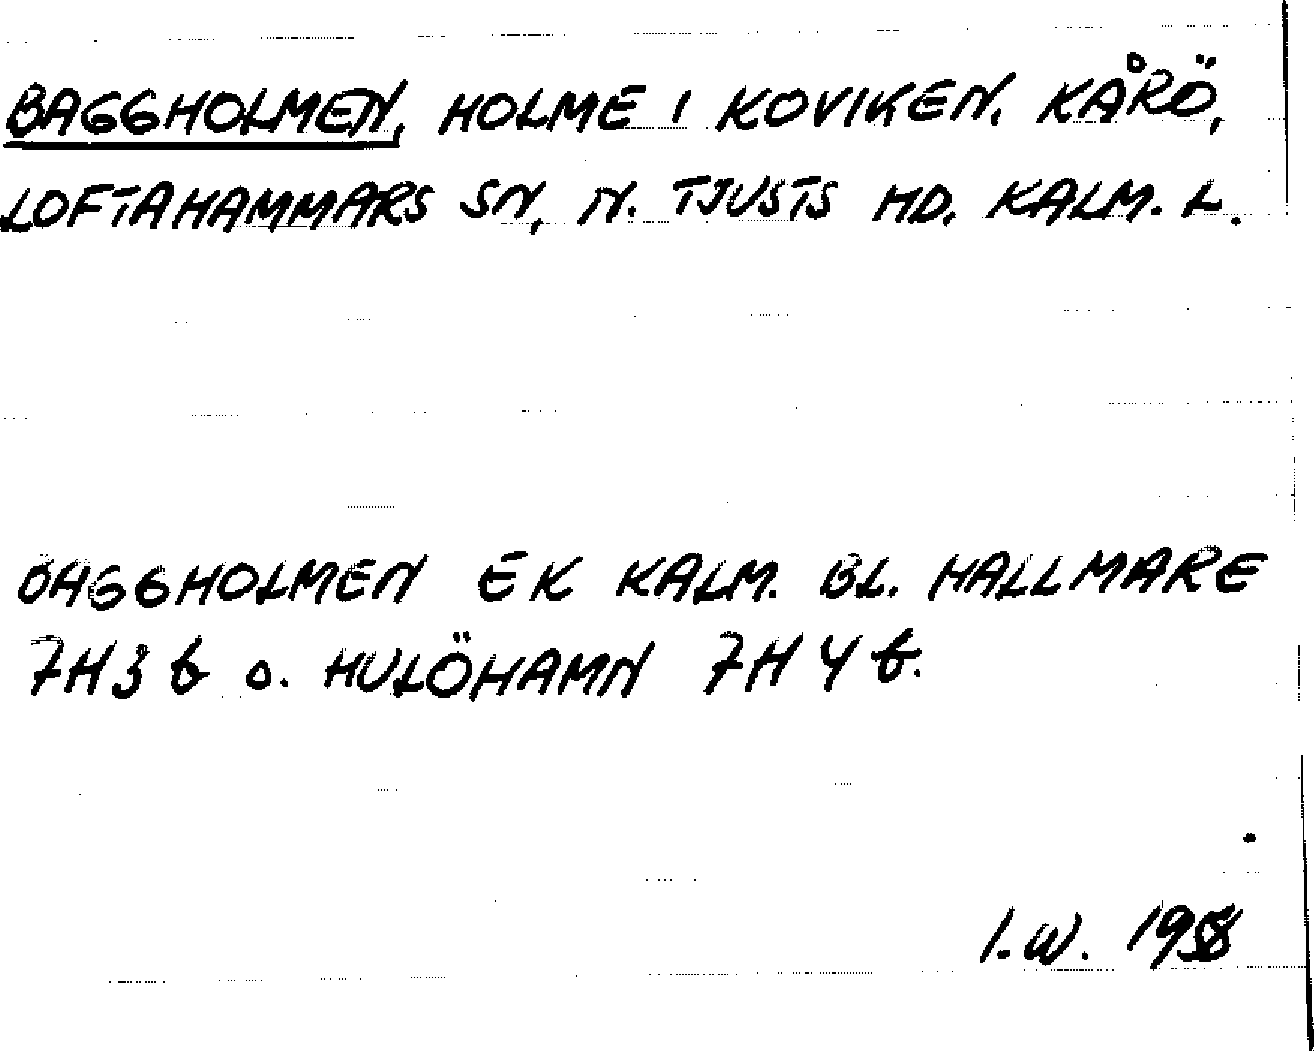 BAGGHOLMEN, HOLME I KOVIKEN. KÅRÖ,
LOFTAHAMMARS SN, N. TJUSTS HD. KALM. L.
BAGGHOLMEN EK KALM. BL. HALLMARE
7H3b o. HULÖHAMN 7H4b.
I.W. 1958